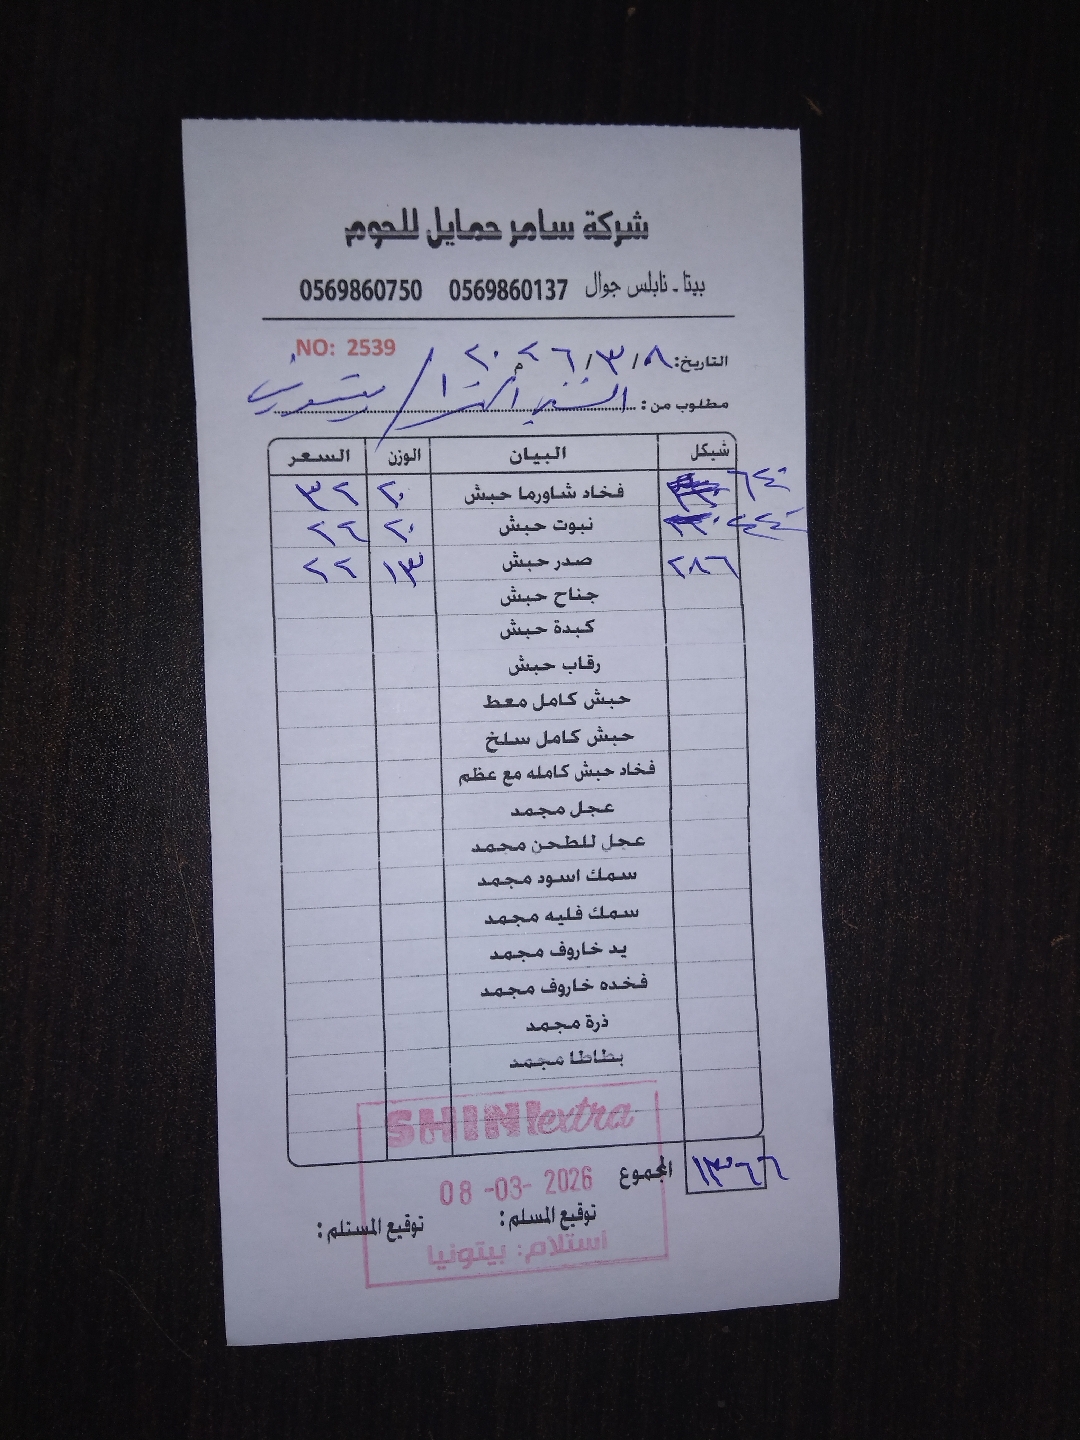 شركة سامر حمايل للحوم
بيتا - نابلس جوال 0569860137 0569860750
NO: 2539
التاريخ: ٠٨ / ٣ / ٢٠٢٦ م
مطلوب من : اكسترا / بيتونيا
شيكل البيان الوزن السعر
٦٤٠ فخاد شاورما حبش ٢٠ ٣٢
٤٤٠ نبوت حبش ٢٠ ٢٢
٢٨٦ صدر حبش ١٣ ٢٢
جناح حبش
كبدة حبش
رقاب حبش
حبش كامل معط
حبش كامل سلخ
فخاد حبش كامله مع عظم
عجل مجمد
عجل للطحن مجمد
سمك اسود مجمد
سمك فليه مجمد
يد خاروف مجمد
فخده خاروف مجمد
ذرة مجمد
بطاطا مجمد
SHINI extra
المجموع ١٣٦٦
08 -03- 2026
توقيع المسلم : توقيع المستلم :
استلام: بيتونيا